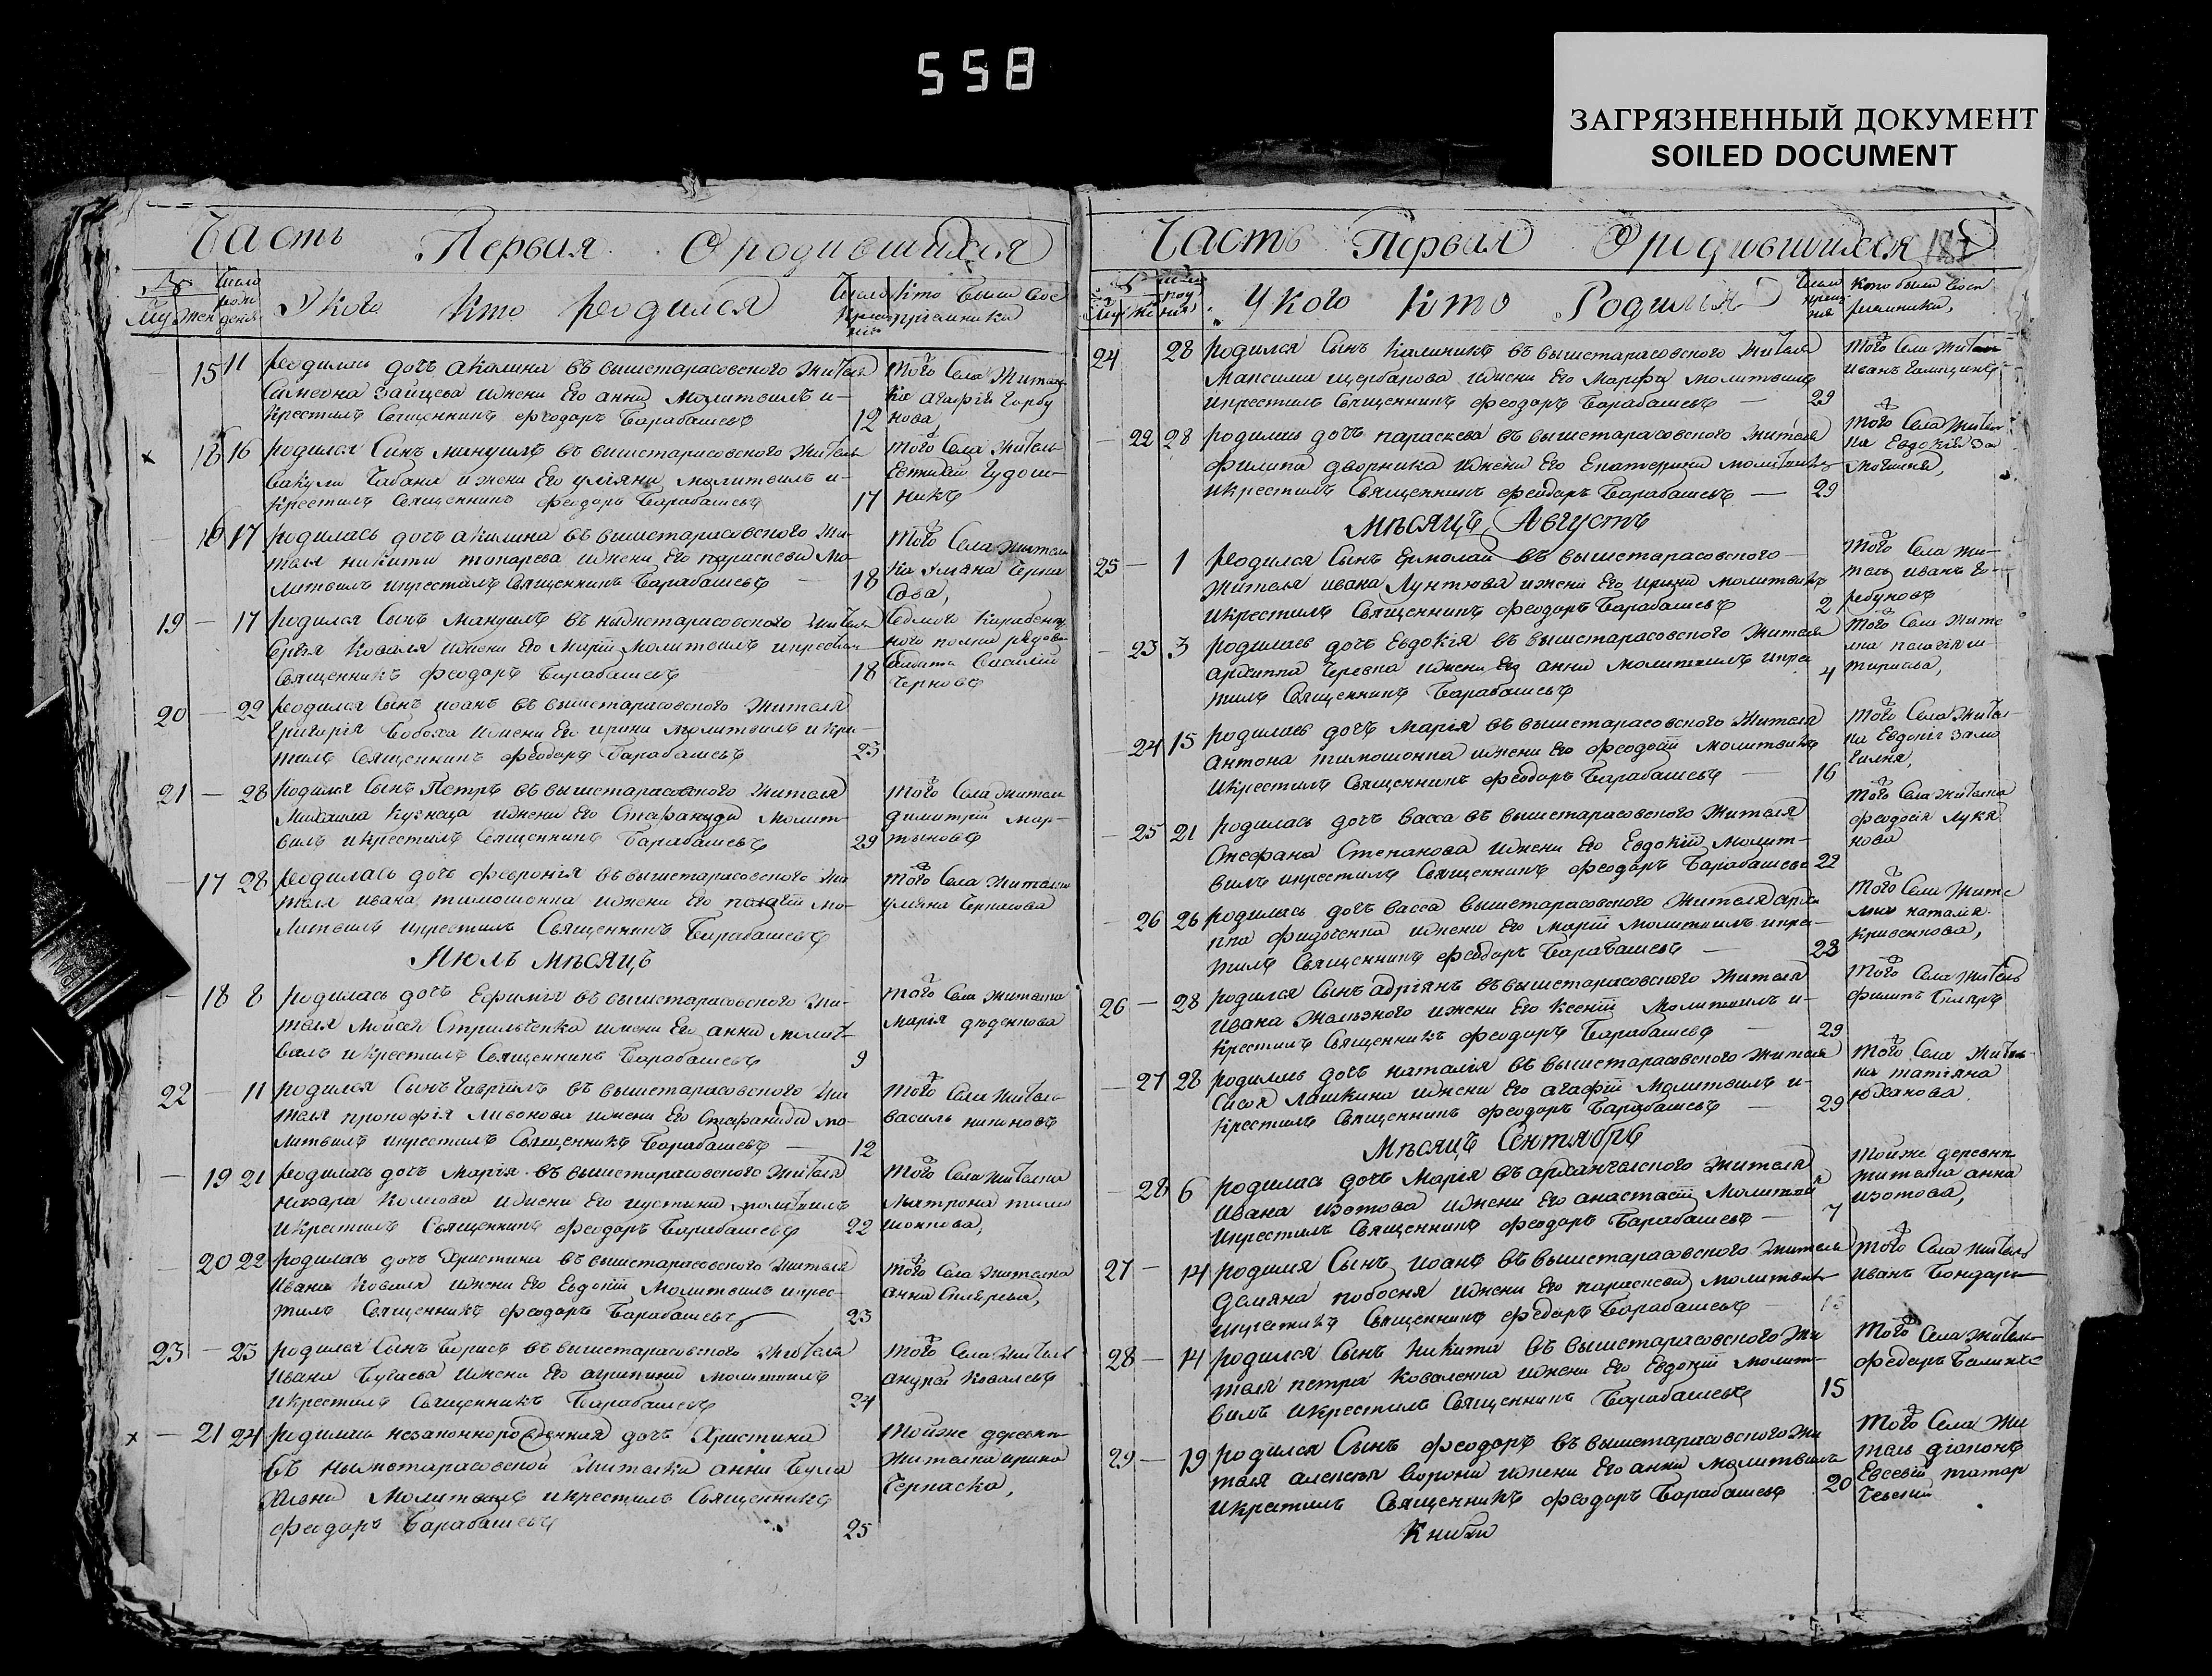 558
ЗАГРЯЗНЕННЫЙ ДОКУМЕНТ
SOILED DOCUMENT
Часть Первая О родившихся
У кого кто родился
15 11 родилась дочь акилина въ вышетарасовского жителя
Самеона Зайцева ижени Его анни молитвилъ и
крестилъ Священникъ феодоръ Барабашевъ 12
Того Села Житель
ка агафія горбу
нова
16 родился Сынъ мануилъ въ вышетарасовского жителя
вакули Чабана ижени Его уліяни молитвилъ и
крестилъ Священникъ феодоръ Барабашевъ 17
Того Села житель
никъ
17 родилась дочь акилина въ вышетарасовского жи-
теля никити токарева ижени Его параскеви мо-
литвилъ икрестилъ Священникъ Барабашевъ 18
Того Села жители
ка уляна Черка
сова,
19 — 17 родился Сынъ Мануилъ въ нижнетарасовского жителя
Сергія Коваля ижени Его Маріи молитвилъ икрестил
Священникъ феодоръ Барабашевъ 18
ного полка рядова
Василій
Черновъ
20 — 22 родился Сынъ иоанъ въ вышетарасовского жителя
григорія Бобоха ижени Его ирини молитвилъ икрес
тилъ Священникъ феодоръ Барабашевъ 23
21 — 28 родился Сынъ Петръ въ вышетарасовского жителя
Михаила Кузнеца ижени Его Стефаниди молит-
вилъ икрестилъ Священникъ Барабашевъ 29
Того Села жители
димитрій мар-
тыновъ
— 17 28 родилась дочь февронія въ вышетарасовского жи
теля ивана тимошенка ижени Его мо-
литвилъ икрестилъ Священникъ Барабашевъ
Того Села жителка
уляна Черкасова
Июль мѣсяцъ
— 18 8 родилась дочь Ефимія въ вышетарасовского жи-
теля Мойсея Стрильченка ижени Его анни молит-
вилъ икрестилъ Священникъ Барабашевъ 9
Того Села жителка
марія дѣденкова
22 — 11 родился Сынъ гавріилъ въ вышетарасовского жи
теля прокофія ливенкова ижени Его Стефаниди мо-
литвилъ икрестилъ Священникъ Барабашевъ — 12
Того Села житель
василь
— 19 21 родилась дочь Марія въ вышетарасовского жителя
назара ижени Его иустини молитвилъ
икрестилъ Священникъ феодоръ Барабашевъ 22
Того Села жителка
Матрона тимо
шенкова,
— 20 22 родилась дочь Христина въ вышетарасовского жителя
Ивана Коваля ижени Его Евдокіи молитвилъ икрес-
тилъ Священникъ феодоръ Барабашевъ 23
Того Села жителка
анна
23 — 23 родился Сынъ Борисъ въ вышетарасовского жителя
Ивана Бугаева ижени Его агрипини молитвилъ
икрестилъ Священникъ Барабашевъ 24
Того Села житель
андрей Ковалевъ
х — 21 24 родилась незаконнорожденная дочь Христина
въ нижнетарасовской жителки анни
молитвилъ икрестилъ Священникъ
феодоръ Барабашевъ 25
Тойже деревни
жителка ирина
Черкаска,
Часть Первая О родившихся
У кого кто Родился
кто были восп
ріемники,
24 28 родился Сынъ Калиникъ въ вышетарасовского жителя
Максима щербакова ижени Его Марфы молитвилъ
икрестилъ Священникъ феодоръ Барабашевъ — 29
Того Села житель
Иванъ
— 22 28 родилась дочь параскева въ вышетарасовского жителя
филипа дворника ижени Его Екатерини молитвилъ
икрестилъ Священникъ феодоръ Барабашевъ — 29
Того Села жител
ка Евдокія За
Мѣсяцъ Августъ
25 — 1 родился Сынъ Ермолай въ вышетарасовского
жителя ивана ижени Его ирини молитвилъ
икрестилъ Священникъ феодоръ Барабашевъ 2
Того Села жи-
тель иванъ го-
рбуновъ
— 23 3 родилась дочь Евдокія въ вышетарасовского жителя
архиппа ижени Его анни молитвилъ икрес
тилъ Священникъ Барабашевъ 4
Того Села жите
лка
— 24 15 родилась дочь Марія въ вышетарасовского жителя
антона тимошенка ижени Его феодосіи молитвилъ
икрестилъ Священникъ феодоръ Барабашевъ — 16
Того Села жител-
ка Евдокія
— 25 21 родилась дочь васса въ вышетарасовского жителя
Стефана Степанова ижени Его Евдокіи молит-
вилъ икрестилъ Священникъ феодоръ Барабашевъ 22
Того Села жителка
феодосія Лукя
нова
— 26 26 родилась дочь васса вышетарасовского жителя архи
ппа ижени Его маріи молитвилъ икрес-
тилъ Священникъ феодоръ Барабашевъ — 28
Того Села жите
лка наталія
Кривенкова,
26 — 28 родился Сынъ адріянъ въ вышетарасовского жителя
ивана ижени Его Ксеніи молитвилъ и-
крестилъ Священникъ феодоръ Барабашевъ — 29
Того Села житель
филипъ
— 27 28 родилась дочь наталія въ вышетарасовского жителя
Сисоя лашкина ижени Его агафіи молитвилъ и-
крестилъ Священникъ феодоръ Барабашевъ — 29
Того Села жител-
ка татіяна
юханова
Мѣсяцъ Сентябрь
— 28 6 родилась дочь Марія въ архангелского жителя
ивана изотова ижени Его анастасіи молитвил
икрестилъ Священникъ феодоръ Барабашевъ — 7
Тойже деревни
жителка анна
изотова,
27 — 14 родился Сынъ иоанъ въ вышетарасовского жителя
Демяна ижени Его параскеви молитвилъ
икрестилъ Священникъ феодоръ Барабашевъ — 15
Того Села житель
иванъ Бондарь
28 — 14 родился Сынъ Никита въ вышетарасовского жи
теля петра Коваленка ижени Его Евдокіи молит-
вилъ икрестилъ Священникъ Барабашевъ 15
Того Села житель
феодоръ
29 — 19 родился Сынъ феодоръ въ вышетарасовского жи
теля алексѣя ворони ижени Его анни молитвилъ
икрестилъ Священникъ феодоръ Барабашевъ 20
Того Села жи
тель діаконъ
Евсевій
Книги